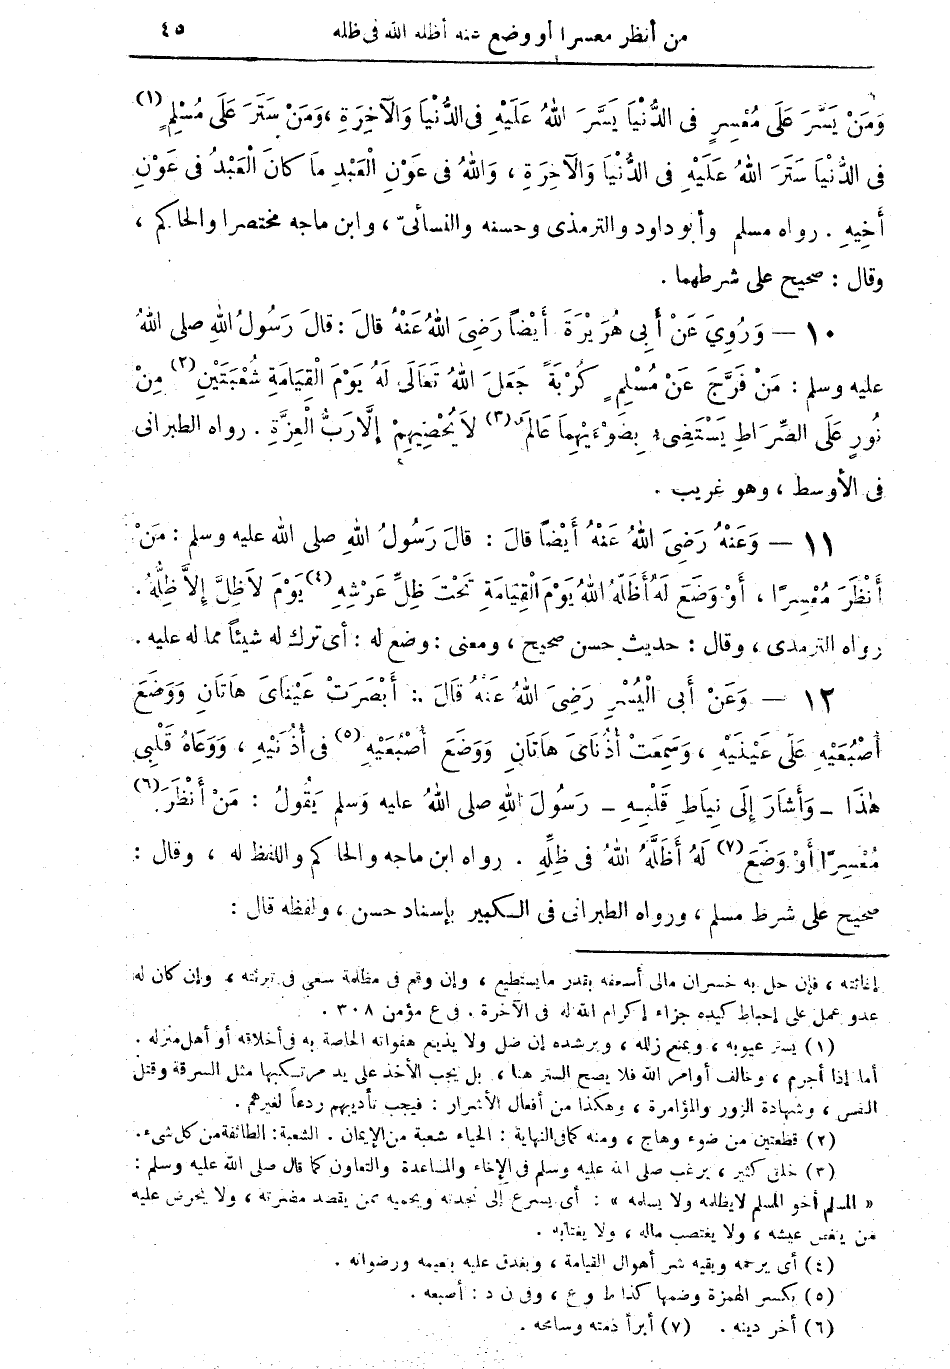 من أنظر معسرا أو وضع عنه أظله الله فى ظله ٤٥
وَمَنْ يَسَّرَ عَلَى مُعْسِرٍ فِى الدُّنْيَا يَسَّرَ اللهُ عَلَيْهِ فِى الدُّنْيَا وَالْآخِرَةِ ، وَمَنْ سَتَرَ عَلَى مُسْلِمٍ (١)
فِى الدُّنْيَا سَتَرَ اللهُ عَلَيْهِ فِى الدُّنْيَا وَالْآخِرَةِ ، وَاللهُ فِى عَوْنِ الْعَبْدِ مَا كَانَ الْعَبْدُ فِى عَوْنِ
أَخِيهِ . رواه مسلم وأبو داود والترمذى وحسنه والنسائىّ ، وابن ماجه مختصرا والحاكم ،
وقال : صحيح على شرطهما .
١٠ — وَرُوِيَ عَنْ أَبِى هُرَيْرَةَ أَيْضاً رَضِىَ اللهُ عَنْهُ قالَ : قالَ رَسُولُ اللهِ صلى اللهُ
عليه وسلم : مَنْ فَرَّجَ عَنْ مُسْلِمٍ كُرْبَةً جَعَلَ اللهُ تَعَالَى لَهُ يَوْمَ الْقِيَامَةِ شُعْبَتَيْنِ (٢) مِنْ
نُورٍ عَلَى الصِّرَاطِ يَسْتَضِىءُ بِضَوْءَيْهِمَا عَالَمٌ (٣) لاَ يُحْصِيهِمْ إِلَّا رَبُّ الْعِزَّةِ . رواه الطبرانى
فى الأوسط ، وهو غريب .
١١ — وَعَنْهُ رَضِىَ اللهُ عَنْهُ أَيْضاً قالَ : قالَ رَسُولُ اللهِ صلى الله عليه وسلم : مَنْ
أَنْظَرَ مُعْسِرًا ، أَوْ وَضَعَ لَهُ أَظَلَّهُ اللهُ يَوْمَ الْقِيَامَةِ تَحْتَ ظِلِّ عَرْشِهِ (٤) يَوْمَ لاَ ظِلَّ إِلاَّ ظِلُّهُ .
رواه الترمذى ، وقال : حديث حسن صحيح ، ومعنى : وضع له : أى ترك له شيئاً مما له عليه .
١٢ — وَعَنْ أَبِى الْيُسْرِ رَضِىَ اللهُ عَنْهُ قَالَ : أَبْصَرَتْ عَيْنَاىَ هَاتَانِ وَوَضَعَ
أُصْبُعَيْهِ عَلَى عَيْنَيْهِ ، وَسَمِعَتْ أُذُنَاىَ هَاتَانِ وَوَضَعَ أُصْبُعَيْهِ (٥) فِى أُذُنَيْهِ ، وَوَعَاهُ قَلْبِى
هٰذَا – وَأَشَارَ إِلَى نِيَاطِ قَلْبِهِ – رَسُولَ اللهِ صلى اللهُ عليه وَسلم يَقُولُ : مَنْ أَنْظَرَ (٦)
مُعْسِرًا أَوْ وَضَعَ (٧) لَهُ أَظَلَّهُ اللهُ فِى ظِلِّهِ . رواه ابن ماجه والحاكم واللفظ له ، وقال :
صحيح على شرط مسلم ، ورواه الطبرانى فى الكبير بإسناد حسن ، ولفظه قال :
إغاثته ، فإن حل به خسران مالى أسعفه بقدر مايستطيع ، وإن وقع فى مظلمة سعى فى تبرئته ، وإن كان له
عدو عمل على إحباط كيده جزاء إكرام الله له فى الآخرة . فى ع مؤمن ٣٠٨ .
(١) يستر عيوبه ، ويمنع زلله ، ويرشده إن ضل ولا يذيع هفواته الخاصة به فى أخلاقه أو أهل منزله .
أما إذا أجرم ، وخالف أوامر الله فلا يصح الستر هنا ، بل يجب الأخذ على يد مرتكبها مثل السرقة وقتل
النفس ، وشهادة الزور والمؤامرة ، وهكذا من أفعال الأشرار : فيجب تأديبهم ردعاً لغيرهم .
(٢) قطعتين من ضوء وهاج ، ومنه كما فى النهاية : الحياء شعبة من الإيمان . الشعبة : الطائفة من كل شىء .
(٣) خلق كثير ، يرغب صلى الله عليه وسلم فى الإخاء والمساعدة والتعاون كما قال صلى الله عليه وسلم :
« المسلم أخو المسلم لايظلمه ولا يسلمه » : أى يسرع إلى نجدته ويحميه ممن يقصد مضرته ، ولا يحرض عليه
من ينغص عيشه ، ولا يغتصب ماله ، ولا يغتابه .
(٤) أى يرحمه ويقيه شر أهوال القيامة ، ويغدق عليه بنعيمه ورضوانه .
(٥) بكسر الهمزة وضمها كذا ط و ع ، وفى ن د : أصبعه .
(٦) أخر دينه . (٧) أبرأ ذمته وسامحه .